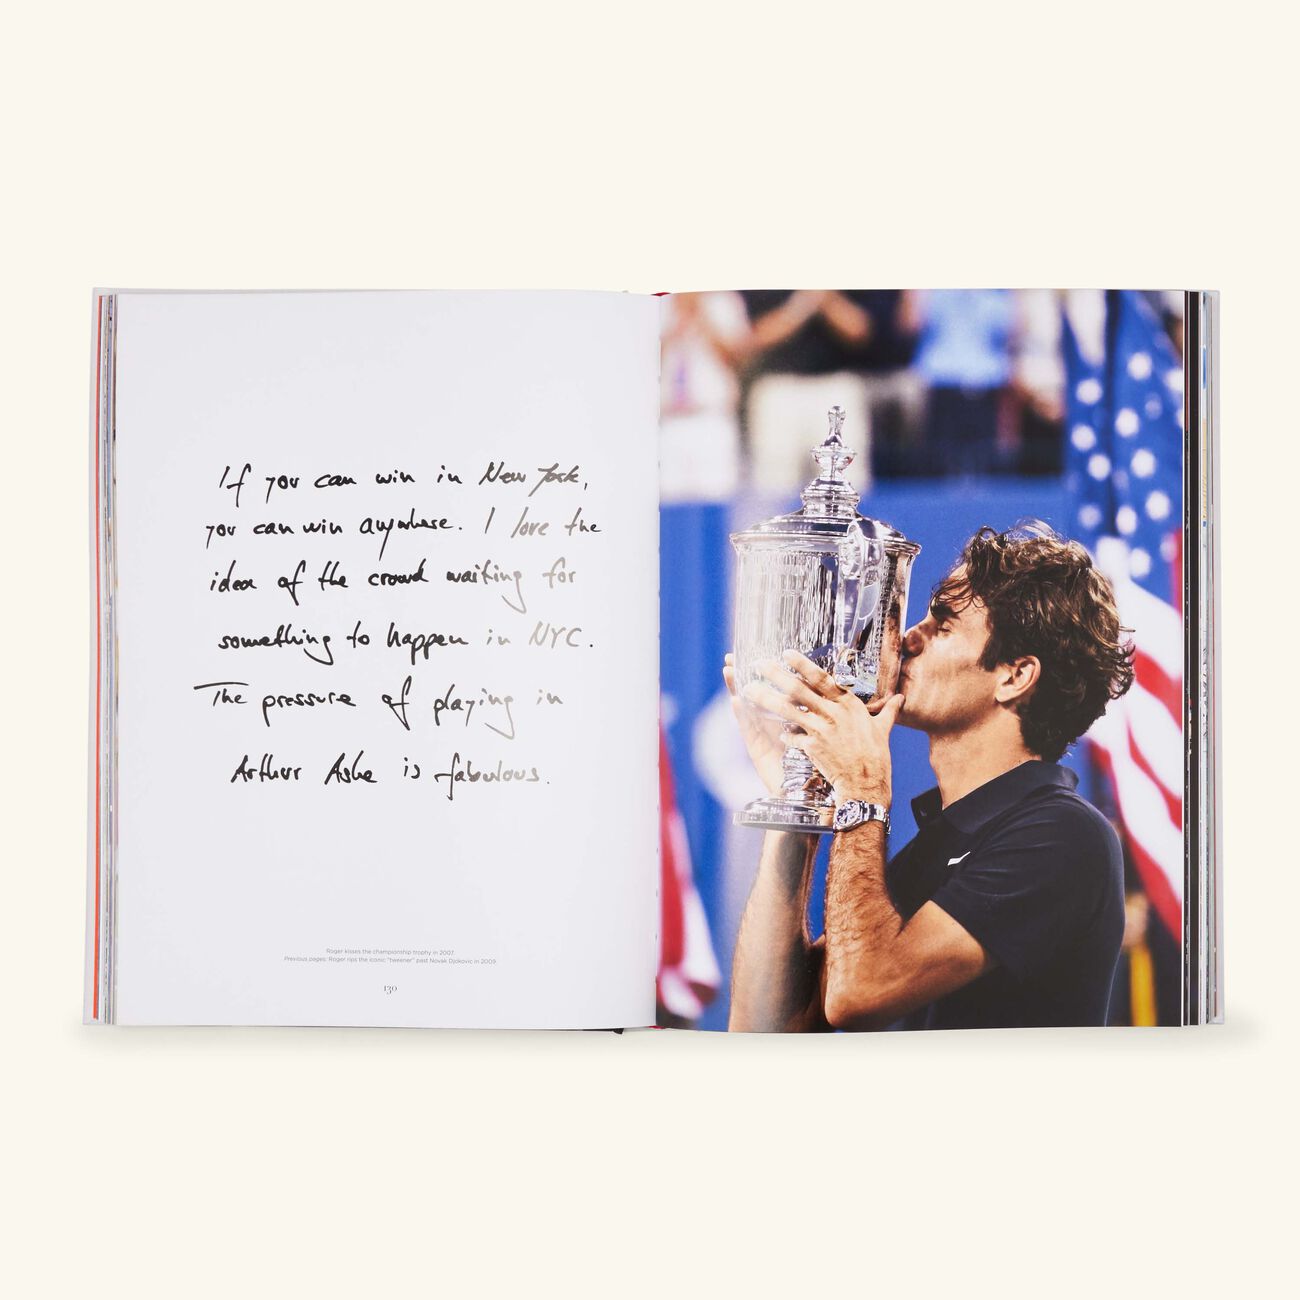 If you can win in New York,
you can win anywhere. I love the
idea of the crowd waiting for
something to happen in NYC.
The pressure of playing in
Arthur Ashe is fabulous.
Roger kisses the championship trophy in 2007.
Previous pages: Roger rips the iconic "tweener" past Novak Djokovic in 2009.
130